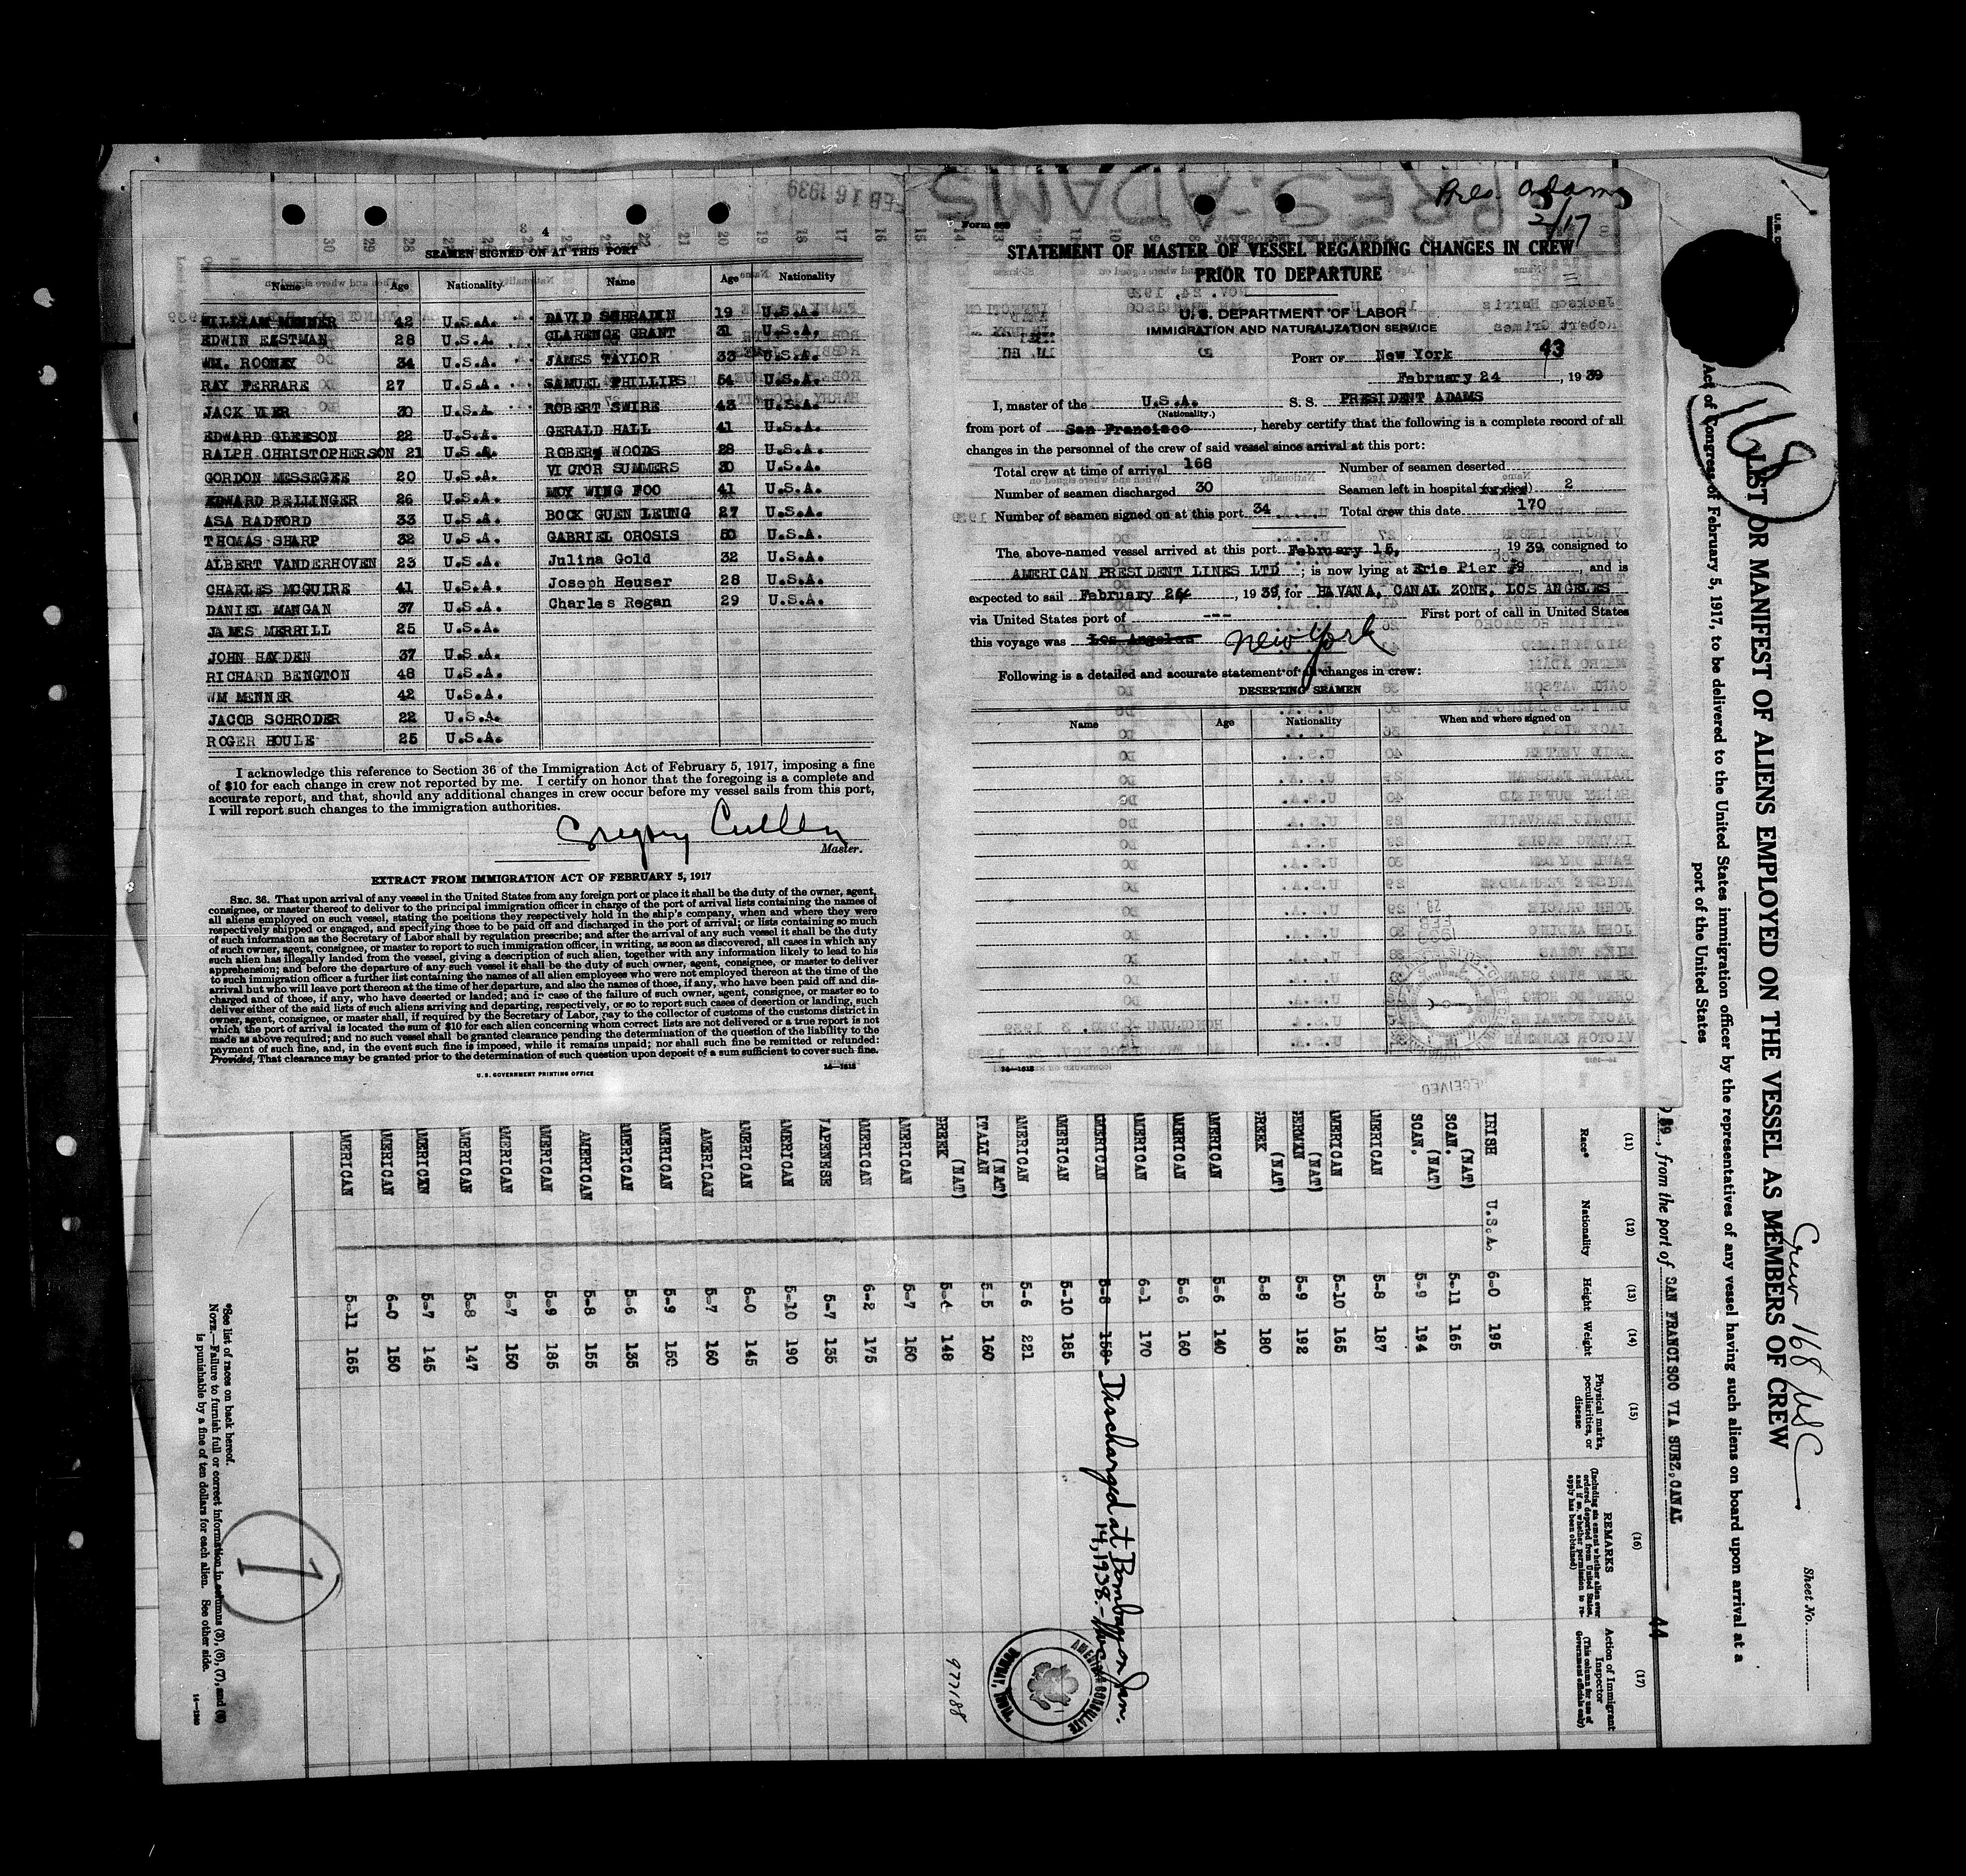 4
SEAMEN SIGNED ON AT THIS PORT
Name Age Nationality Name Age Nationality
WILLIAM MENNER 42 U.S.A. DAVID SCHRADIN 19 U.S.A.
EDWIN EASTMAN 28 U.S.A. CLARENCE GRANT 31 U.S.A.
WM. ROONEY 34 U.S.A. JAMES TAYLOR 33 U.S.A.
RAY FERRARE 27 U.S.A. SAMUEL PHILLIPS 54 U.S.A.
JACK VIER 30 U.S.A. ROBERT SWIRE 43 U.S.A.
EDWARD GLEESON 22 U.S.A. GERALD HALL 41 U.S.A.
RALPH CHRISTOPHERSON 21 U.S.A. ROBERT WOODS 28 U.S.A.
GORDON MESSEGEE 20 U.S.A. VICTOR SUMMERS 30 U.S.A.
EDWARD BELLINGER 26 U.S.A. MOY WING FOO 41 U.S.A.
ASA RADFORD 33 U.S.A. BOCK GUEN LEUNG 27 U.S.A.
THOMAS SHARP 32 U.S.A. GABRIEL OROSIS 50 U.S.A.
ALBERT VANDERHOVEN 23 U.S.A. Julina Gold 32 U.S.A.
CHARLES MCGUIRE 41 U.S.A. Joseph Heuser 28 U.S.A.
DANIEL MANGAN 37 U.S.A. Charles Regan 29 U.S.A.
JAMES MERRILL 25 U.S.A.
JOHN HAYDEN 37 U.S.A.
RICHARD BENGTON 48 U.S.A.
WM MENNER 42 U.S.A.
JACOB SCHRODER 22 U.S.A.
ROGER HOULE 25 U.S.A.
I acknowledge this reference to Section 36 of the Immigration Act of February 5, 1917, imposing a fine
of $10 for each change in crew not reported by me. I certify on honor that the foregoing is a complete and
accurate report, and that, should any additional changes in crew occur before my vessel sails from this port,
I will report such changes to the immigration authorities.
Gregory Cullen
Master.
EXTRACT FROM IMMIGRATION ACT OF FEBRUARY 5, 1917
SEC. 36. That upon arrival of any vessel in the United States from any foreign port or place it shall be the duty of the owner, agent,
consignee, or master thereof to deliver to the principal immigration officer in charge of the port of arrival lists containing the names of
all aliens employed on such vessel, stating the positions they respectively hold in the ship's company, when and where they were
respectively shipped or engaged, and specifying those to be paid off and discharged in the port of arrival; or lists containing so much
of such information as the Secretary of Labor shall by regulation prescribe; and after the arrival of any such vessel it shall be the duty
of such owner, agent, consignee, or master to report to such immigration officer, in writing, as soon as discovered, all cases in which any
such alien has illegally landed from the vessel, giving a description of such alien, together with any information likely to lead to his
apprehension; and before the departure of any such vessel it shall be the duty of such owner, agent, consignee, or master to deliver
to such immigration officer a further list containing the names of all alien employees who were not employed thereon at the time of the
arrival but who will leave port thereon at the time of her departure, and also the names of those, if any, who have been paid off and dis-
charged and of those, if any, who have deserted or landed; and in case of the failure of such owner, agent, consignee, or master so to
deliver either of the said lists of such aliens arriving and departing, respectively, or so to report such cases of desertion or landing, such
owner, agent, consignee, or master shall, if required by the Secretary of Labor, pay to the collector of customs of the customs district in
which the port of arrival is located the sum of $10 for each alien concerning whom correct lists are not delivered or a true report is not
made as above required; and no such vessel shall be granted clearance pending the determination of the question of the liability to the
payment of such fine, and, in the event such fine is imposed, while it remains unpaid; nor shall such fine be remitted or refunded:
Provided, That clearance may be granted prior to the determination of such question upon deposit of a sum sufficient to cover such fine.
U. S. GOVERNMENT PRINTING OFFICE 14—1613
Pres. Adams
2/17
Form
STATEMENT OF MASTER OF VESSEL REGARDING CHANGES IN CREW
PRIOR TO DEPARTURE
U. S. DEPARTMENT OF LABOR
IMMIGRATION AND NATURALIZATION SERVICE
43
PORT OF New York
February 24, 1939
I, master of the U.S.A. S. S. PRESIDENT ADAMS
(Nationality.)
from port of San Francisco, hereby certify that the following is a complete record of all
changes in the personnel of the crew of said vessel since arrival at this port:
Total crew at time of arrival 168 Number of seamen deserted
Number of seamen discharged 30 Seamen left in hospital (or died) 2
Number of seamen signed on at this port 34 Total crew this date 170
The above-named vessel arrived at this port February 15, 1939, consigned to
AMERICAN PRESIDENT LINES LTD; is now lying at Erie Pier #9, and is
expected to sail February 24, 1939, for HAVANA, CANAL ZONE, LOS ANGELES
via United States port of --- First port of call in United States
this voyage was Los Angeles New York
Following is a detailed and accurate statement of all changes in crew:
DESERTING SEAMEN
Name Age Nationality When and where signed on
14—1613
168
LIST OR MANIFEST OF ALIENS EMPLOYED ON THE VESSEL AS MEMBERS OF CREW
Crew 168 USC
Sheet No.
Act of Congress of February 5, 1917, to be delivered to the United States immigration officer by the representatives of any vessel having such aliens on board upon arrival at a
port of the United States
39, from the port of SAN FRANCISCO VIA SUEZ, CANAL
44
(11) (12) (13) (14) (15) (16) (17)
Race* Nationality Height Weight Physical marks, peculiarities, or disease REMARKS (Including statement whether alien ever ordered deported from United States, and if so, whether permission to re-apply has been obtained) Action of Immigrant Inspector (This column for use of Government officials only)
IRISH U.S.A. 6-0 195
SCAN. (NAT) 5-11 165
SCAN. (NAT) 5-9 194
AMERICAN 5-8 187
AMERICAN 5-10 165
GERMAN (NAT) 5-9 192
GREEK (NAT) 5-8 180
AMERICAN 5-6 140
AMERICAN 5-6 160
AMERICAN 6-1 170
AMERICAN 5-8 158 Discharged at Bombay on Jan. 14, 1938.
AMERICAN 5-10 185
AMERICAN 5-6 221
ITALIAN (NAT) 5 5 160
GREEK (NAT) 5-4 148 97188
AMERICAN 5-7 150
AMERICAN 6-2 175
JAPENESE 5-7 135
AMERICAN 5-10 190
AMERICAN 6-0 145
AMERICAN 5-7 160
AMERICAN 5-9 150
AMERICAN 5-6 135
AMERICAN 5-8 155
AMERICAN 5-9 185
AMERICAN 5-7 150
AMERICAN 5-8 147
AMERICXN 5-7 145
AMERICAN 6-0 150
AMERICAN 5-11 165
AMERICAN CONSULATE
BOMBAY, INDIA
*See list of races on back hereof.
NOTE.—Failure to furnish full or correct information in columns (3), (6), (7), and (8)
is punishable by a fine of ten dollars for each alien. See other side.
1